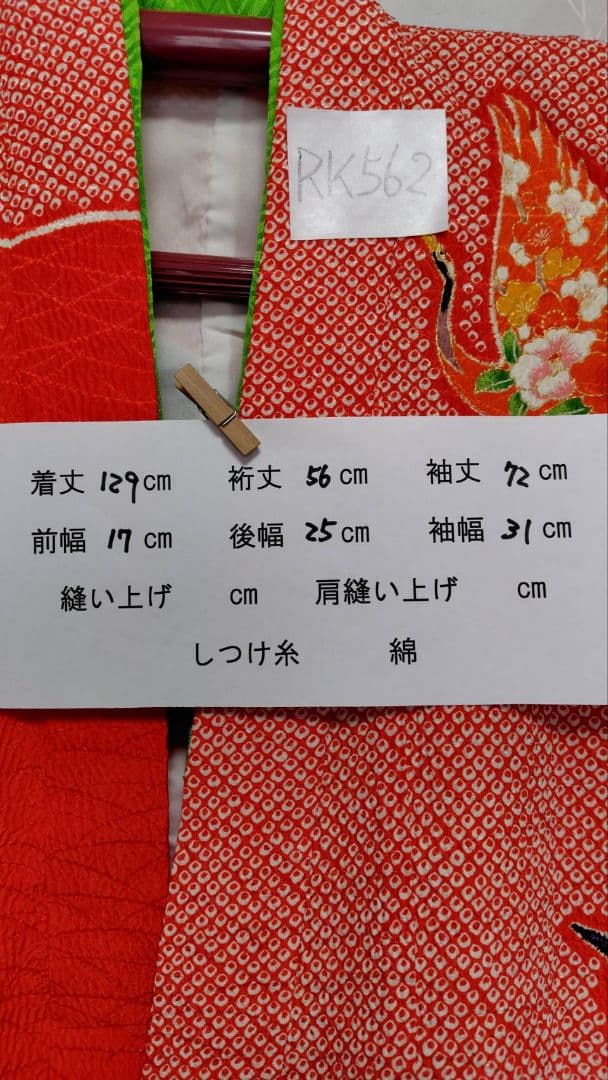 RK562
着丈 129cm 裄丈 56cm 袖丈 72cm
前幅 17cm 後幅 25cm 袖幅 31cm
縫い上げ cm 肩縫い上げ cm
しつけ糸 綿